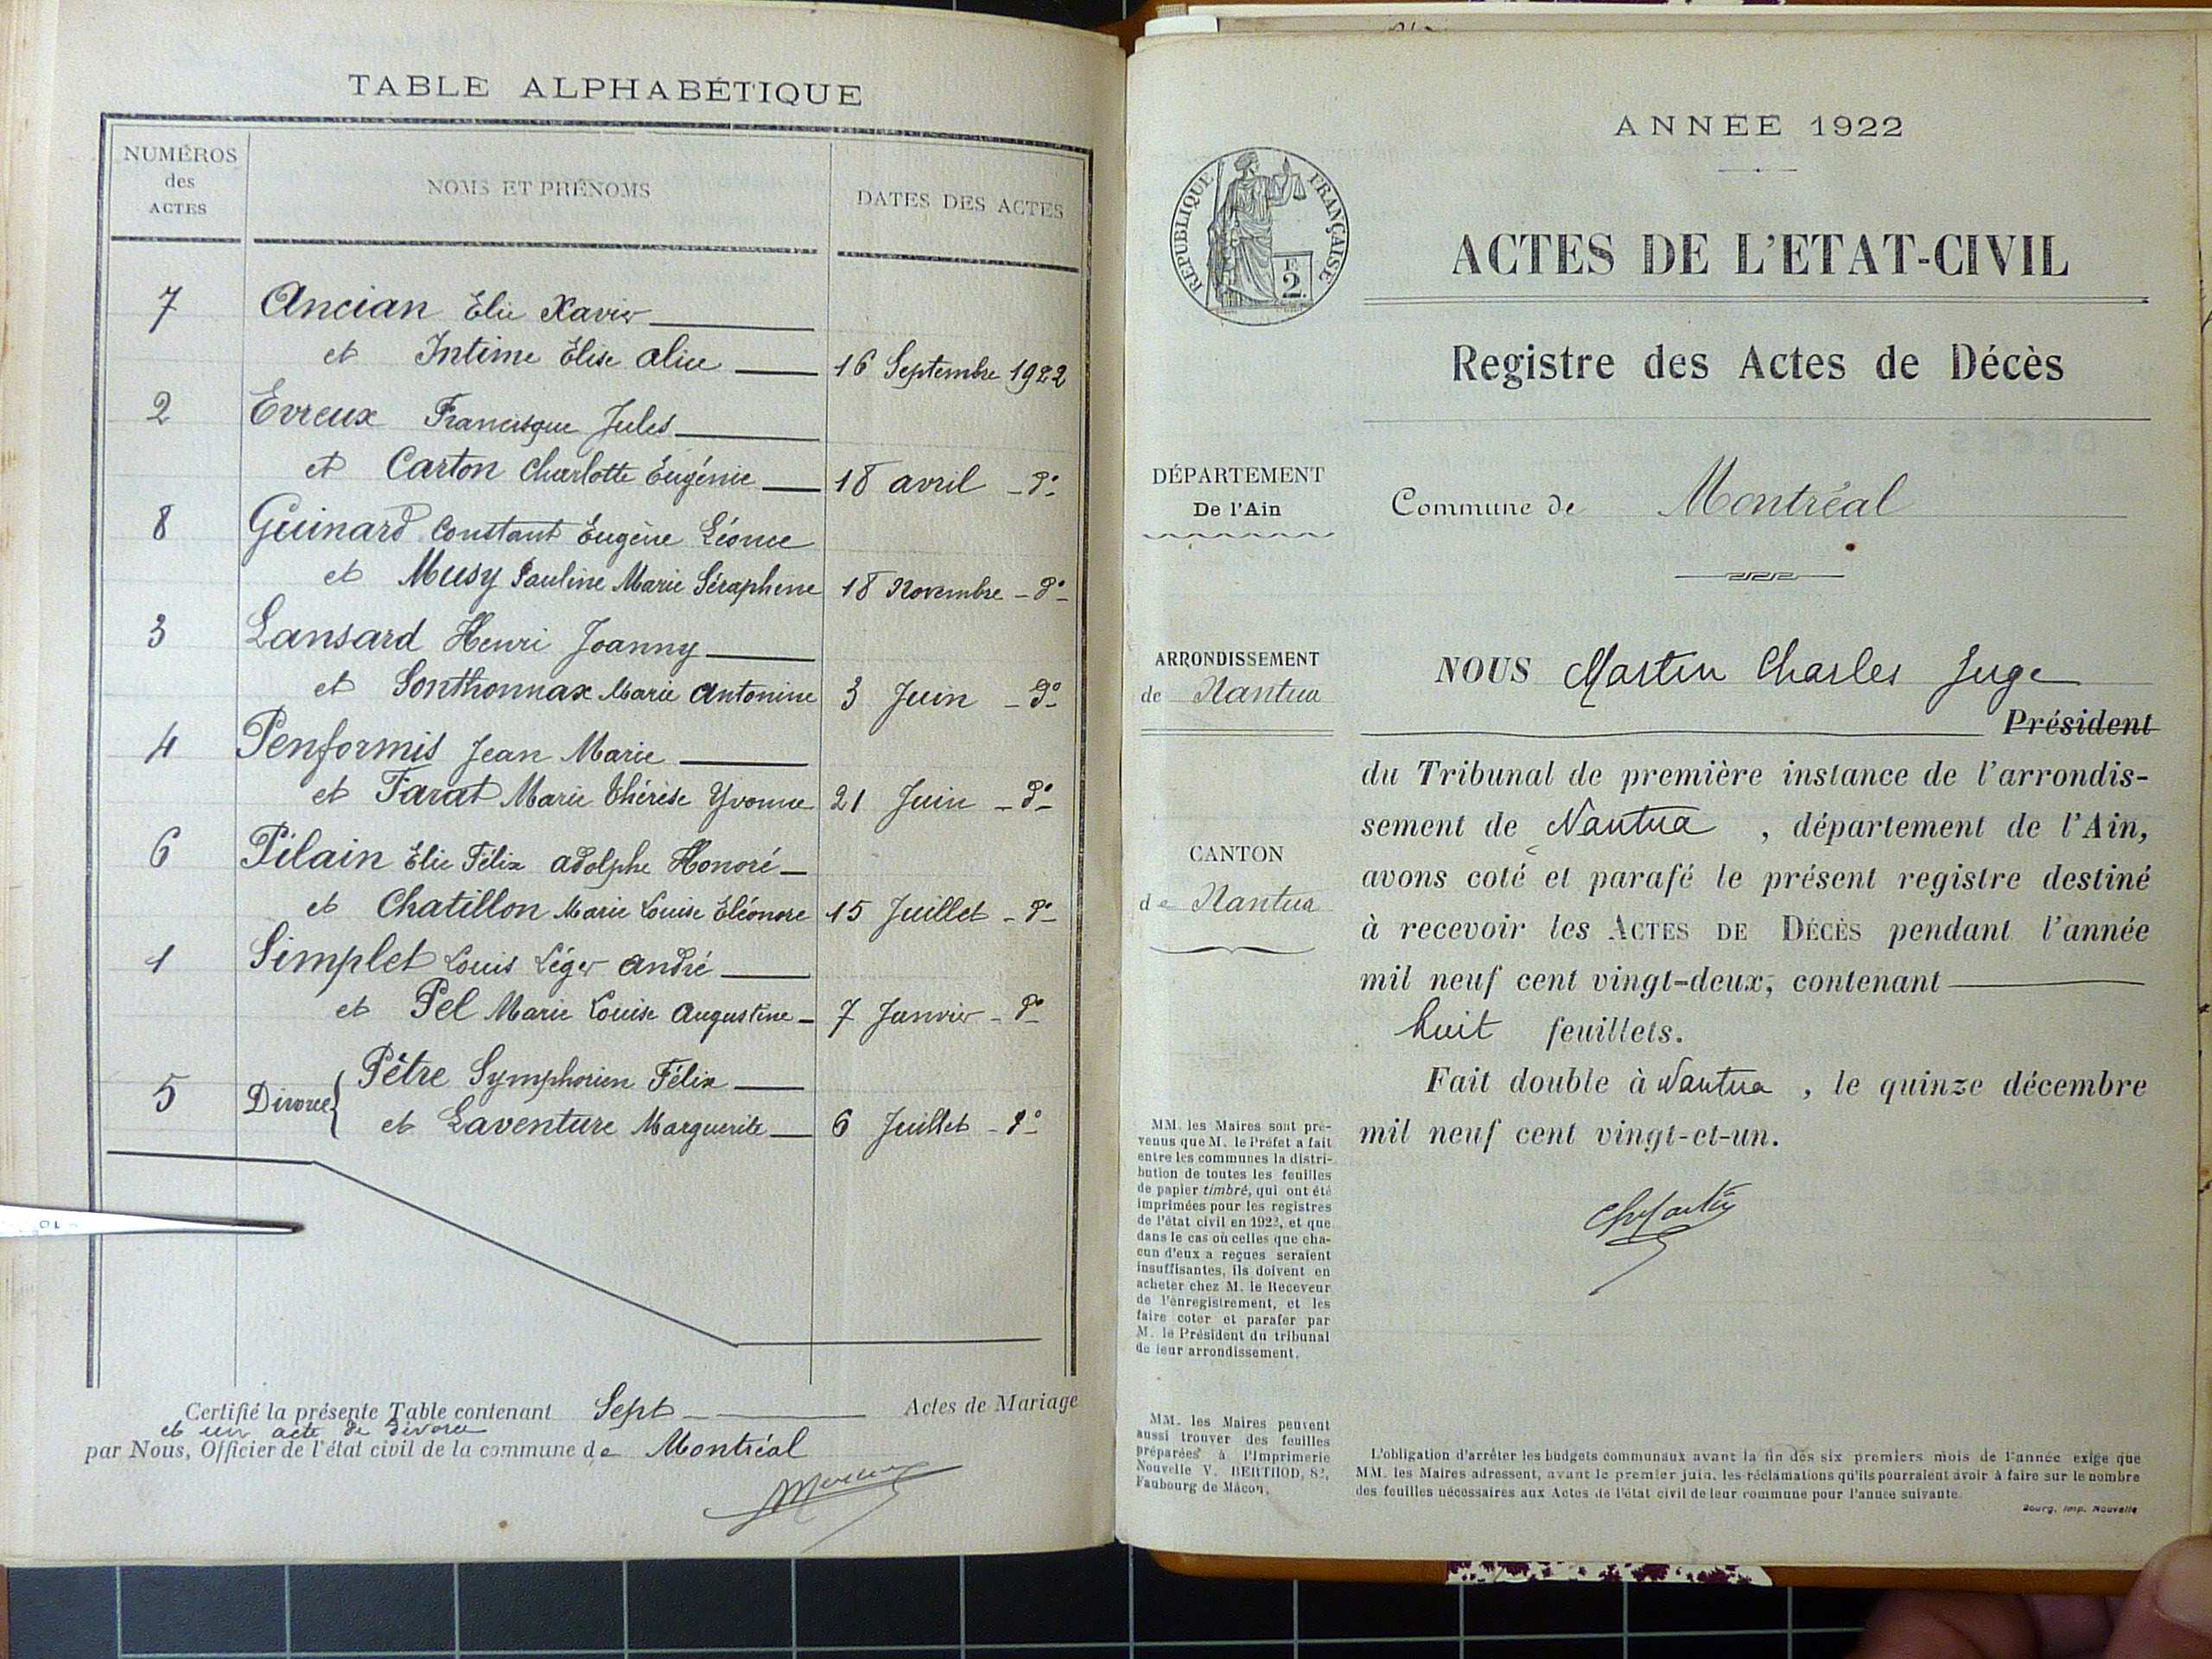 TABLE ALPHABÉTIQUE
NUMÉROS
des
ACTES
NOMS ET PRÉNOMS
DATES DES ACTES
7 Ancian Elie Xavier
et Intime Elise Alice 16 Septembre 1922
2 Evreux Francisque Jules
et Carton Charlotte Eugénie 18 avril _ do_
8 Guinard Constant Eugène Léonce
et Musy Pauline Marie Séraphine 18 Novembre _ do_
3 Lansard Henri Joanny
et Sonthonnax Marie Antonine 3 Juin _ do_
4 Penformis Jean Marie
et Farat Marie Thérèse Yvonne 21 Juin _ do_
6 Pilain Elie Félix Adolphe Honoré
et Chatillon Marie Louise Eléonore 15 Juillet _ do_
1 Simplet Louis Léger André
et Pel Marie Louise Augustine 7 Janvier _ do_
5 Divorce { Pêtre Symphorien Félix
et Laventure Marguerite 6 Juillet _ do_
Certifié la présente Table contenant Sept Actes de Mariage
et un acte de divorce
par Nous, Officier de l'état civil de la commune de Montréal
ANNÉE 1922
RÉPUBLIQUE FRANÇAISE
F.
2.
ACTES DE L'ETAT-CIVIL
Registre des Actes de Décès
DÉPARTEMENT
De l'Ain
Commune de Montréal
ARRONDISSEMENT
de Nantua
CANTON
de Nantua
NOUS Martin Charles Juge
Président
du Tribunal de première instance de l'arrondis-
sement de Nantua , département de l'Ain,
avons coté et parafé le présent registre destiné
à recevoir les ACTES DE DÉCÈS pendant l'année
mil neuf cent vingt-deux, contenant
huit feuillets.
Fait double à Nantua , le quinze décembre
mil neuf cent vingt-et-un.
ChMartin
MM. les Maires sont pré-
venus que M. le Préfet a fait
entre les communes la distri-
bution de toutes les feuilles
de papier timbré, qui ont été
imprimées pour les registres
de l'état civil en 1922, et que
dans le cas où celles que cha-
cun d'eux a reçues seraient
insuffisantes, ils doivent en
acheter chez M. le Receveur
de l'énregistrement, et les
faire coter et parafer par
M. le Président du tribunal
de leur arrondissement.
MM. les Maires peuvent
aussi trouver des feuilles
préparées à l'Imprimerie
Nouvelle V. BERTHOD, 82,
Faubourg de Mâcon.
L'obligation d'arrêter les budgets communaux avant la fin des six premiers mois de l'année exige que
MM. les Maires adressent, avant le premier juin, les réclamations qu'ils pourraient avoir à faire sur le nombre
des feuilles nécessaires aux Actes de l'état civil de leur commune pour l'année suivante.
Bourg, Imp. Nouvelle